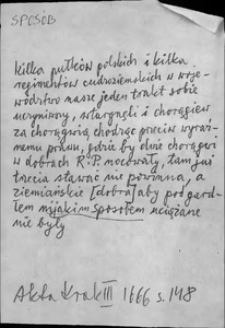 SPOSÓB
Kilka pułków polskich i kilka
regimentów cudzoziemskich w woje-
wództwo nasze jeden trakt sobie
uczyniwszy, wtargnęli i chorągiew
za chorągwią chodząc przeciw wyraź-
nemu prawu, gdzie by dwie chorągwi
w dobrach R.P. nocowały, tam już
trzecia stawać nie powinna, a
ziemiańskie [dobra] aby pod gard-
łem nijakim sposobem uciążane
nie były
Akta Krak III 1666 s. 148